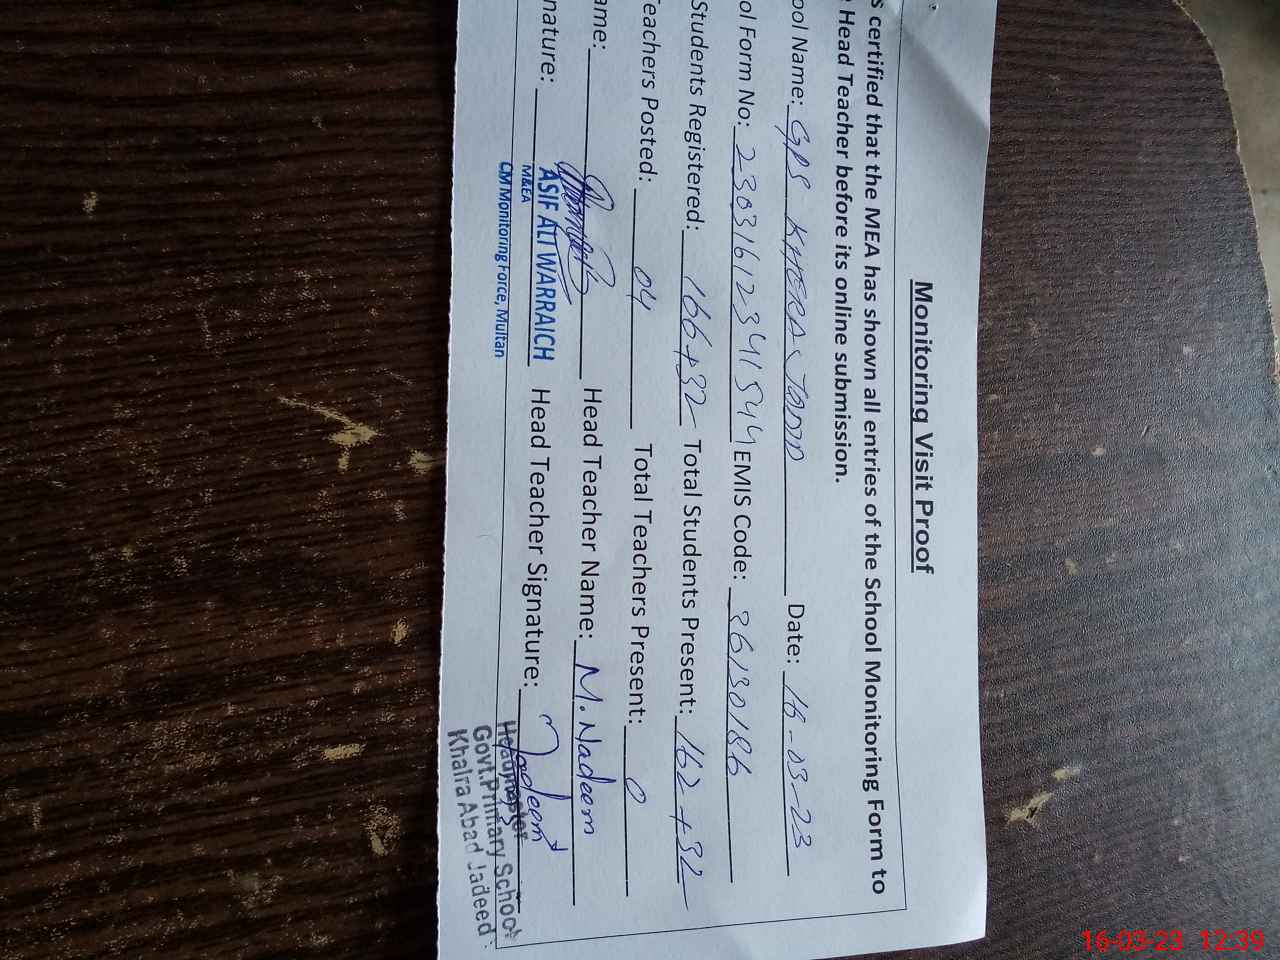 Monitoring Visit Proof
s certified that the MEA has shown all entries of the School Monitoring Form to
e Head Teacher before its online submission.
ool Name: GPS KHERA JADID Date: 16-03-23
ol Form No: 23031612341544 EMIS Code: 36130186
Students Registered: 166+32 Total Students Present: 162+32
Teachers Posted: 04 Total Teachers Present: 0
ame: Head Teacher Name: M. Nadeem
nature: Head Teacher Signature: Nadeem
ASIF ALI WARRAICH
M&EA
CM Monitoring Force, Multan
Headmaster
Govt. Primary School
Khaira Abad Jadeed
16-03-23 12:39